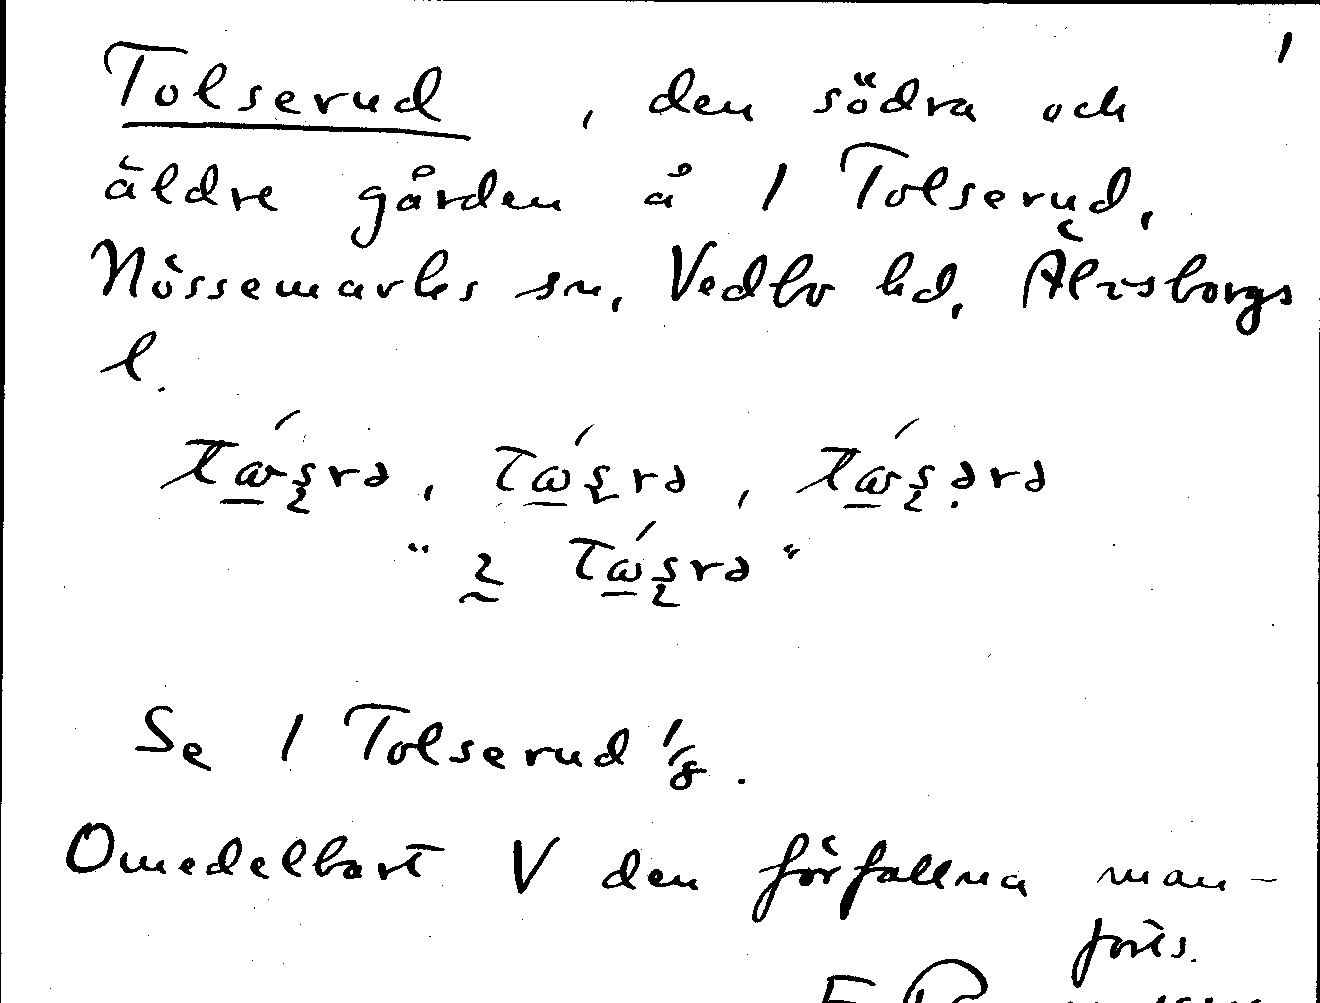 1
Tolserud, den södra och
äldre gården å 1 Tolserud,
Nössemarks sn, Vedbo hd, Älvsborgs
l.
Se 1 Tolserud 1/8.
Omedelbart V den förfallna man-
forts.